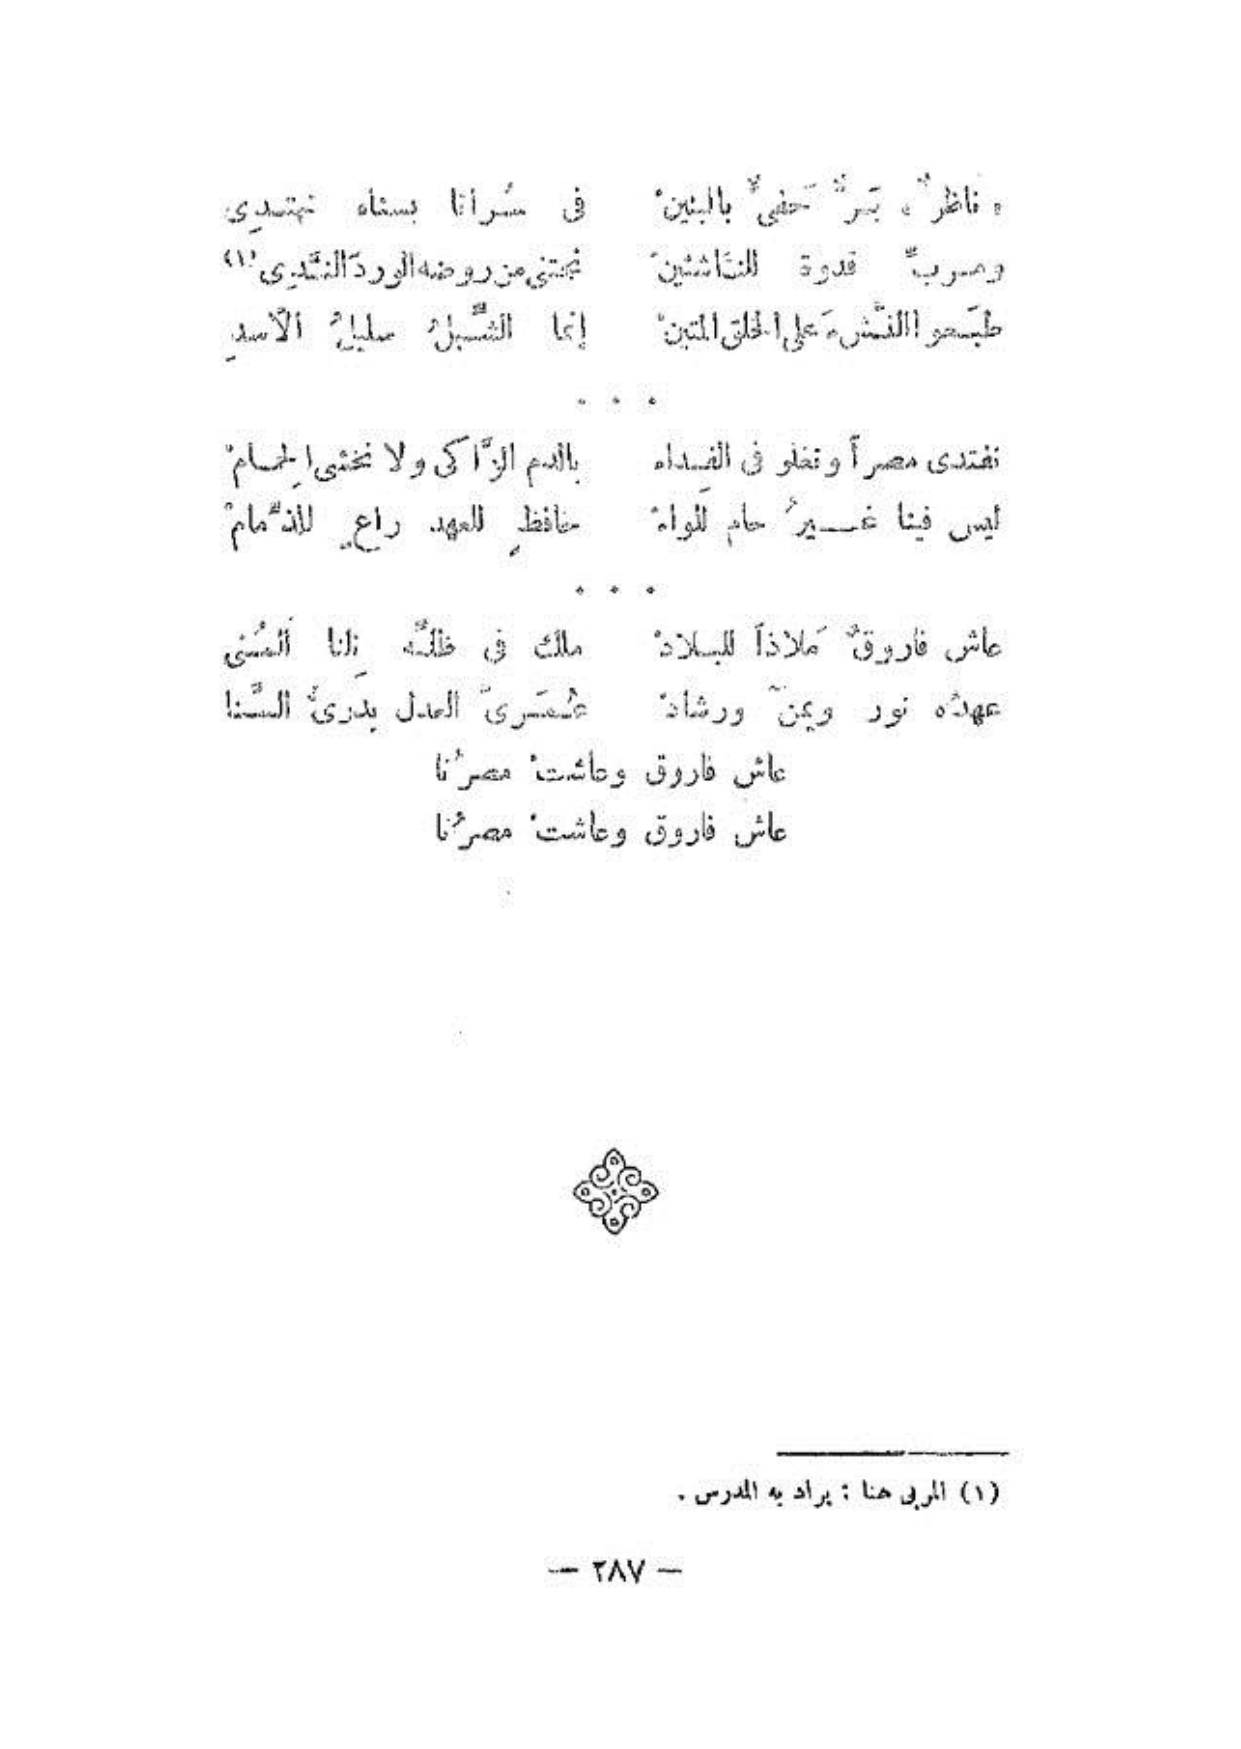 « ناظرٌ » بَـرٌّ حَفىٌّ بالبنينْ فى سُرانا بسناه نهتـدِى
ومـربٍّ قدوة للنـَّاشئينْ نجتنى من روضه الوردَ النَّدِى (١)
طبَـعوا النَّشءَ على الخلق المتينْ إنما الشِّبلُ سليلُ الأسدِ
• • •
نفتدى مصراً ونغلو فى الفـداء بالدم الزَّاكى ولا نخشى الِحمـامْ
ليس فينا غـــيرُ حام لِلواءْ حافظٍ للعهد راعٍ للذِّمامْ
• • •
عاش فاروقٌ مَلاذاً للبـلادْ ملك فى ظلـِّه نِلنا المُـنى
عهدُه نور ويمنٌ ورشادْ عُـمَـرىُّ العدل بدَرىُّ السَّنا
عاش فاروق وعاشتْ مصرُنا
عاش فاروق وعاشتْ مصرُنا
(١) المربى هنا : يراد به المدرس .
— ٢٨٧ —